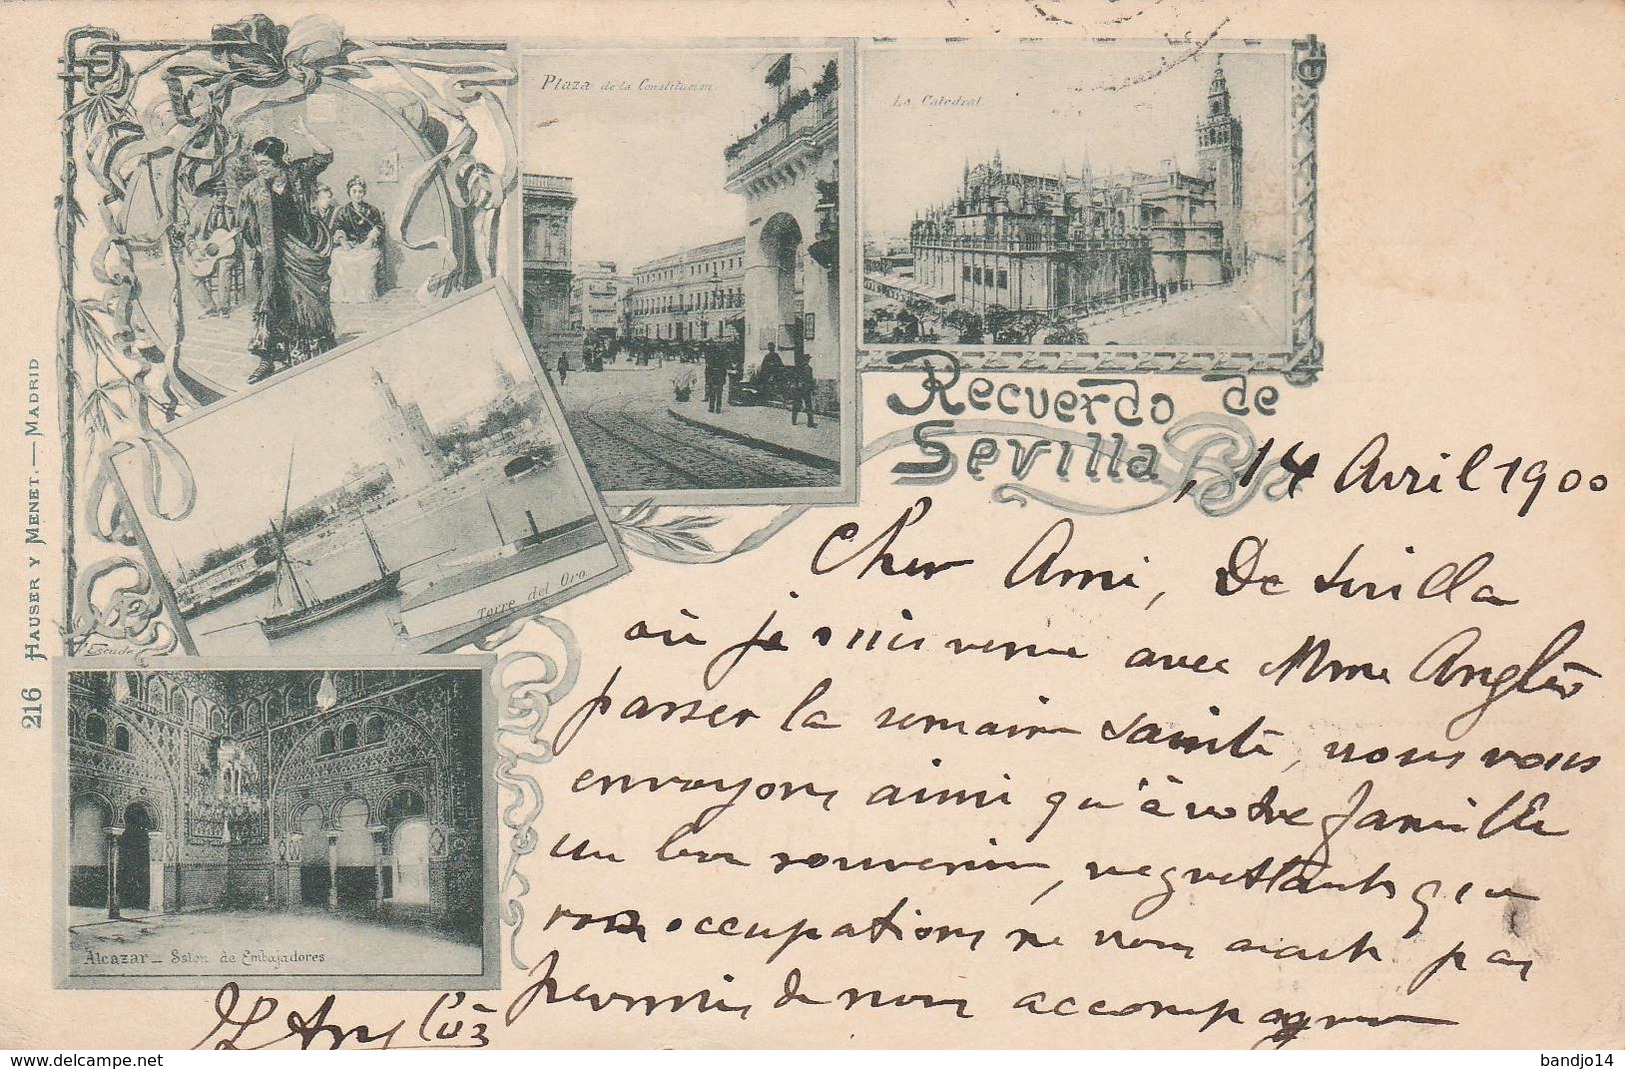 Plaza de la Constitucion
La Catedral
Recuerdo de
Sevilla
, 14 Avril 1900
Cher Ami, De Sevilla
où je suis venu avec Mme Anglès
passer la semaine sainte, nous vous
envoyons ainsi qu'à votre famille
un bon souvenir, regrettant que
vos occupations ne vous aient pas
permis de nous accompagner
Torre del Oro
Escudo
Alcazar - Salon de Embajadores
216 HAUSER Y MENET. — MADRID
delcampe.net
bandjo14